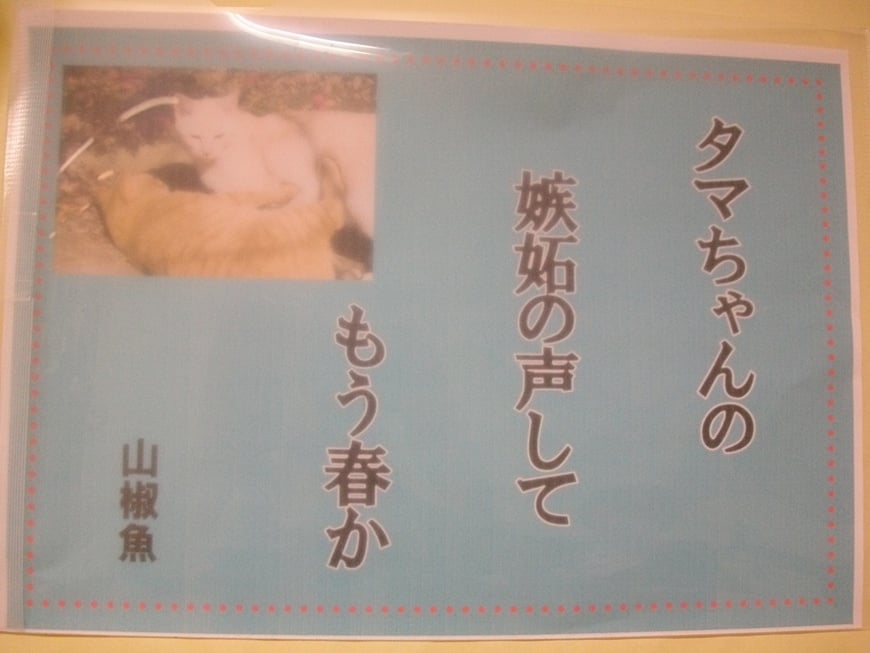 タマちゃんの
嫉妬の声して
もう春か
山椒魚